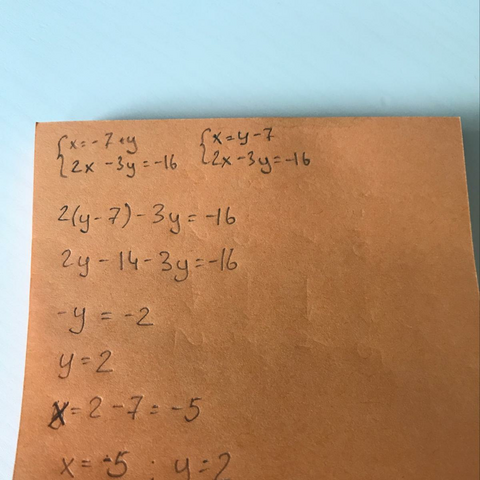 {x=-7+y {x=y-7
{2x-3y=-16 {2x-3y=-16
2(y-7)-3y=-16
2y-14-3y=-16
-y=-2
y=2
x=2-7=-5
x=-5; y=2